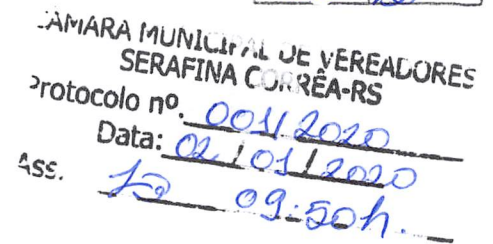 CÂMARA MUNICIPAL DE VEREADORES
SERAFINA CORRÊA-RS
Protocolo nº. 001/2020
Data: 02/01/2020
Ass. 09:50h.